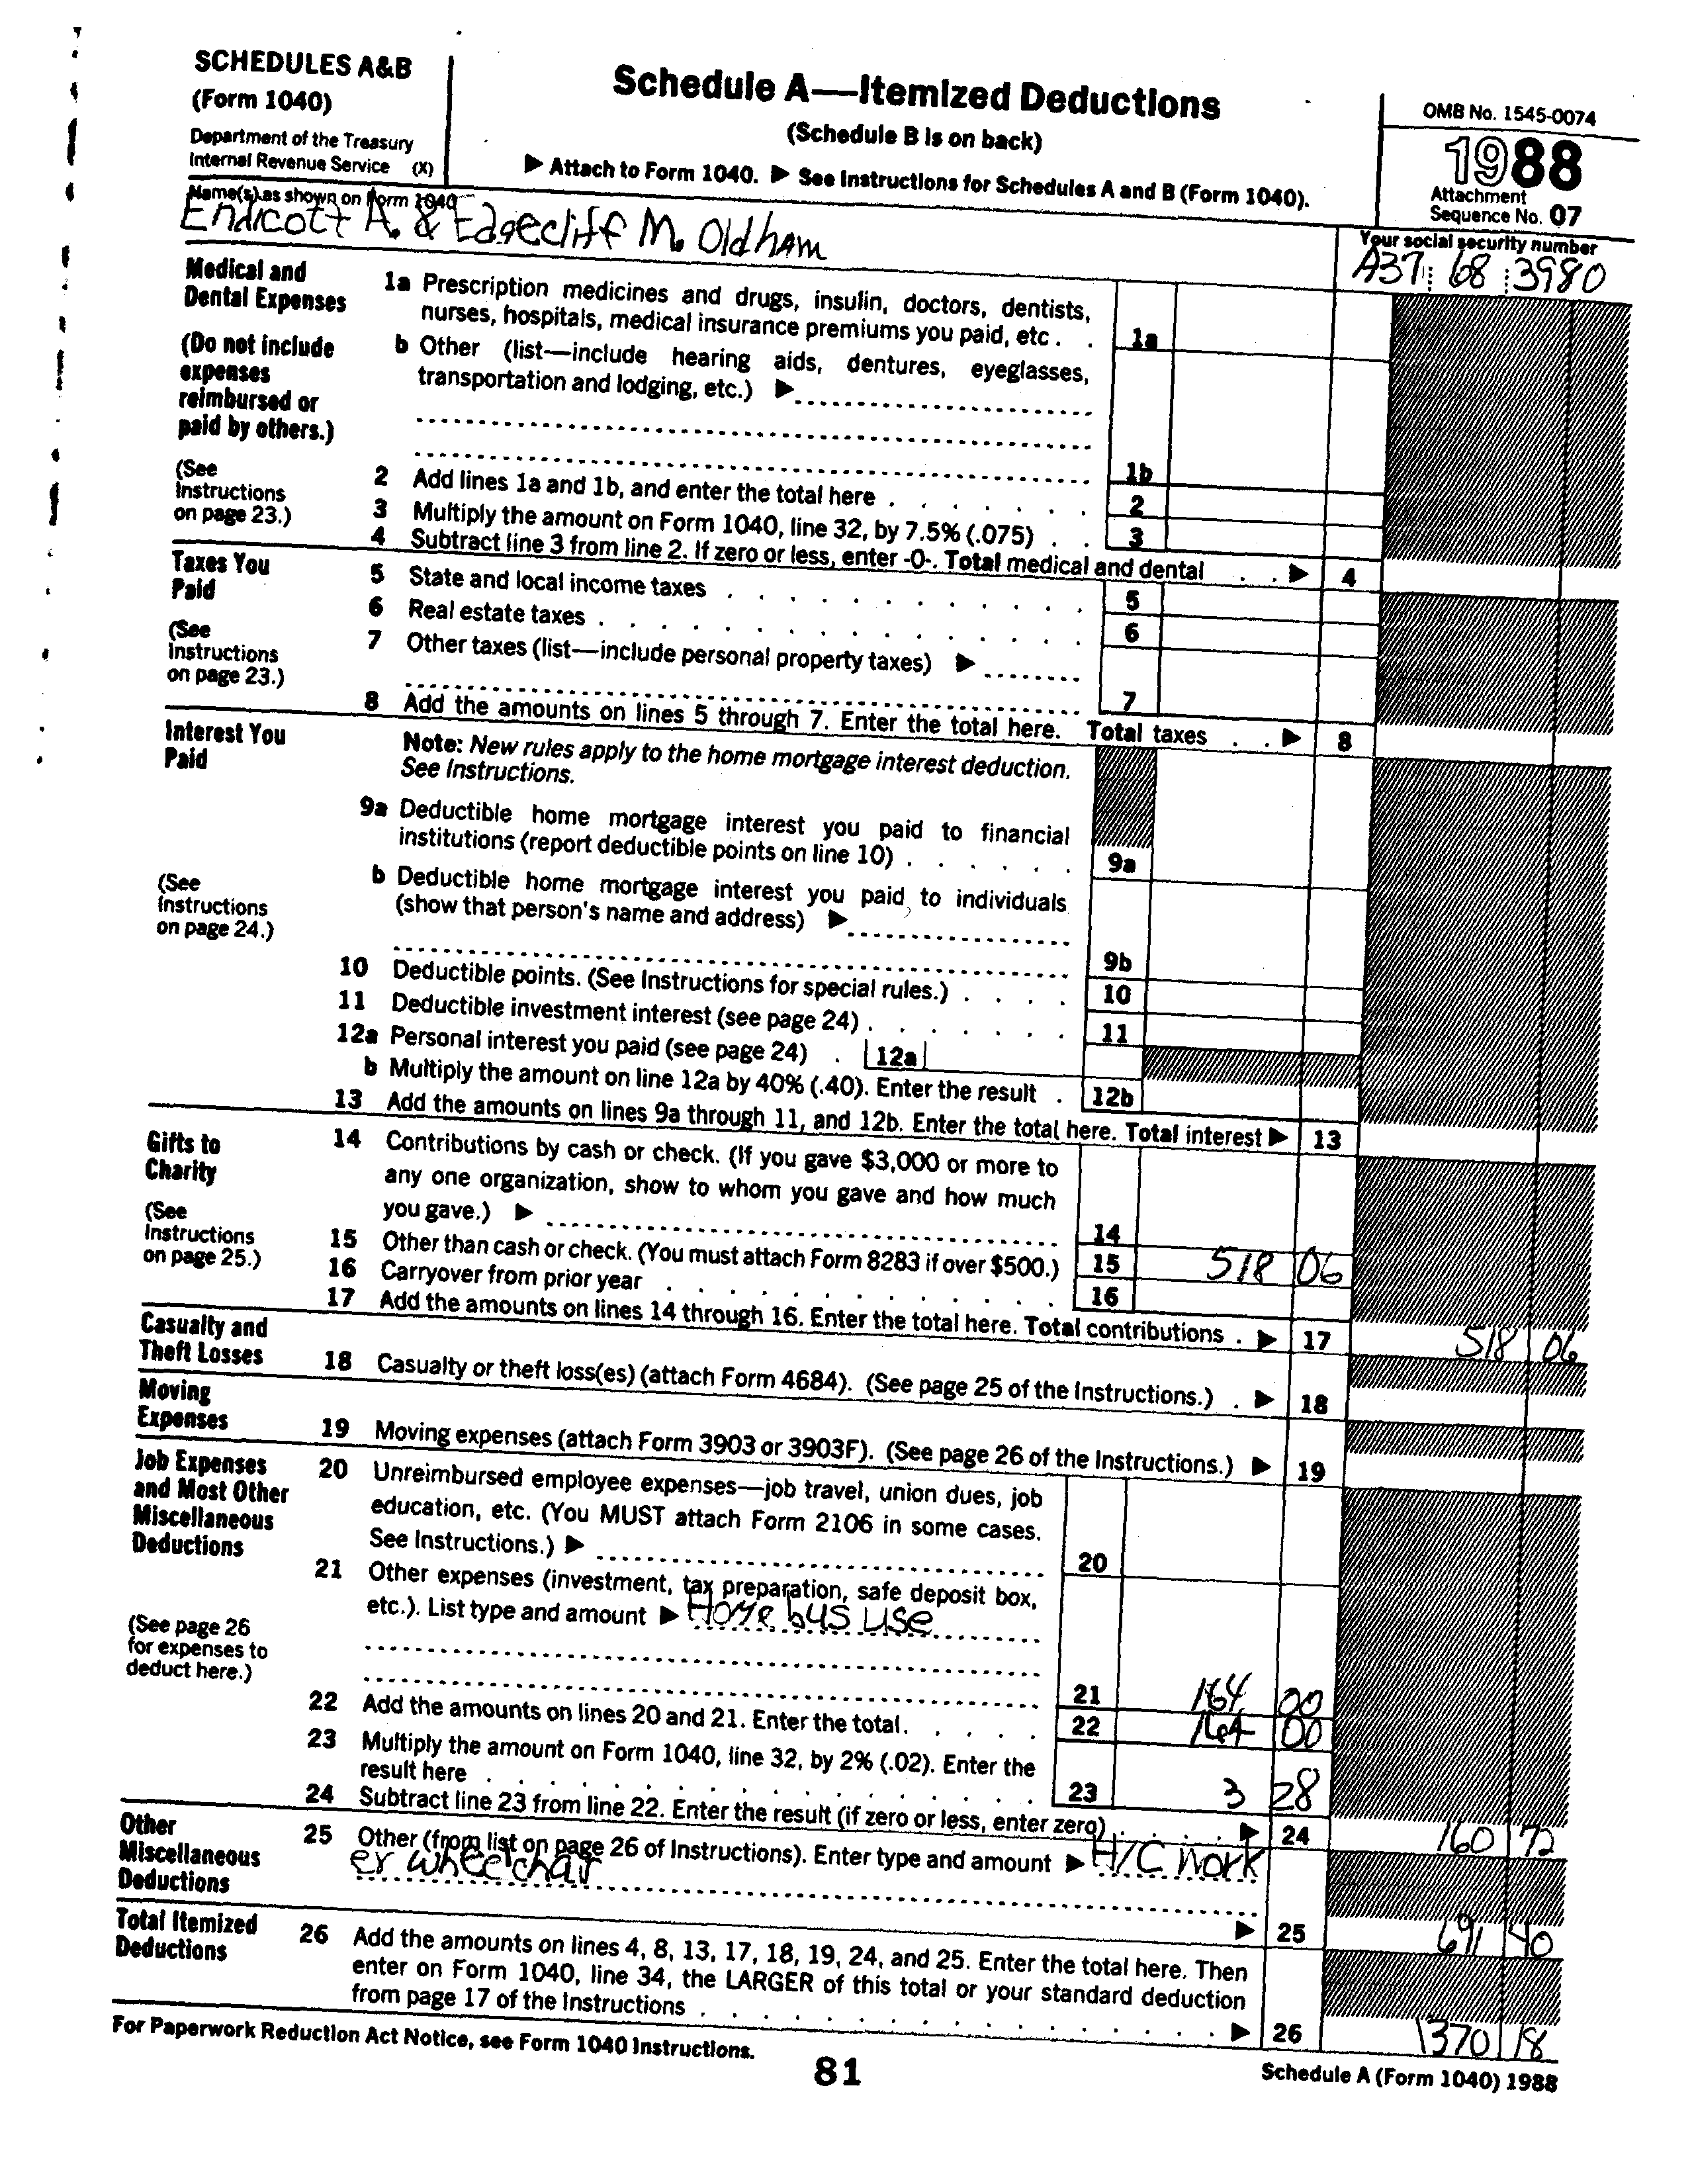 SCHEDULES A&B
(Form 1040)
Department of the Treasury
Internal Revenue Service (X)
Schedule A—Itemized Deductions
(Schedule B is on back)
▶ Attach to Form 1040. ▶ See Instructions for Schedules A and B (Form 1040).
OMB No. 1545-0074
1988
Attachment
Sequence No. 07
Name(s) as shown on Form 1040
Endicott A. & Edgecliff M. Oldham
Your social security number
A37 68 3980
Medical and
Dental Expenses
(Do not include
expenses
reimbursed or
paid by others.)
(See
Instructions
on page 23.)
1a Prescription medicines and drugs, insulin, doctors, dentists,
nurses, hospitals, medical insurance premiums you paid, etc . . 1a
b Other (list—include hearing aids, dentures, eyeglasses,
transportation and lodging, etc.) ▶
1b
2 Add lines 1a and 1b, and enter the total here . . . . . . . 2
3 Multiply the amount on Form 1040, line 32, by 7.5% (.075) . . 3
4 Subtract line 3 from line 2. If zero or less, enter -0-. Total medical and dental . . ▶ 4
Taxes You
Paid
(See
Instructions
on page 23.)
5 State and local income taxes . . . . . . . . . . . . 5
6 Real estate taxes . . . . . . . . . . . . . . . . 6
7 Other taxes (list—include personal property taxes) ▶
7
8 Add the amounts on lines 5 through 7. Enter the total here. Total taxes . . ▶ 8
Interest You
Paid
(See
Instructions
on page 24.)
Note: New rules apply to the home mortgage interest deduction.
See Instructions.
9a Deductible home mortgage interest you paid to financial
institutions (report deductible points on line 10) . . . . . . 9a
b Deductible home mortgage interest you paid to individuals
(show that person's name and address) ▶
9b
10 Deductible points. (See Instructions for special rules.) . . . . 10
11 Deductible investment interest (see page 24) . . . . . . . 11
12a Personal interest you paid (see page 24) . 12a
b Multiply the amount on line 12a by 40% (.40). Enter the result . 12b
13 Add the amounts on lines 9a through 11, and 12b. Enter the total here. Total interest ▶ 13
Gifts to
Charity
(See
Instructions
on page 25.)
14 Contributions by cash or check. (If you gave $3,000 or more to
any one organization, show to whom you gave and how much
you gave.) ▶
14
15 Other than cash or check. (You must attach Form 8283 if over $500.) 15 518 06
16 Carryover from prior year . . . . . . . . . . . . . 16
17 Add the amounts on lines 14 through 16. Enter the total here. Total contributions . ▶ 17 518 06
Casualty and
Theft Losses
18 Casualty or theft loss(es) (attach Form 4684). (See page 25 of the Instructions.) . ▶ 18
Moving
Expenses
19 Moving expenses (attach Form 3903 or 3903F). (See page 26 of the Instructions.) ▶ 19
Job Expenses
and Most Other
Miscellaneous
Deductions
(See page 26
for expenses to
deduct here.)
20 Unreimbursed employee expenses—job travel, union dues, job
education, etc. (You MUST attach Form 2106 in some cases.
See Instructions.) ▶
20
21 Other expenses (investment, tax preparation, safe deposit box,
etc.). List type and amount ▶ Home bus use
21 164 00
22 Add the amounts on lines 20 and 21. Enter the total . . . . . 22 164 00
23 Multiply the amount on Form 1040, line 32, by 2% (.02). Enter the
result here . . . . . . . . . . . . . . . . . . 23 3 28
24 Subtract line 23 from line 22. Enter the result (if zero or less, enter zero) . . . . ▶ 24 160 72
Other
Miscellaneous
Deductions
25 Other (from list on page 26 of Instructions). Enter type and amount ▶ H/C Work
er wheelchair
▶ 25 691 40
Total Itemized
Deductions
26 Add the amounts on lines 4, 8, 13, 17, 18, 19, 24, and 25. Enter the total here. Then
enter on Form 1040, line 34, the LARGER of this total or your standard deduction
from page 17 of the Instructions . . . . . . . . . . . . . . . . . ▶ 26 1370 18
For Paperwork Reduction Act Notice, see Form 1040 Instructions.
81
Schedule A (Form 1040) 1988